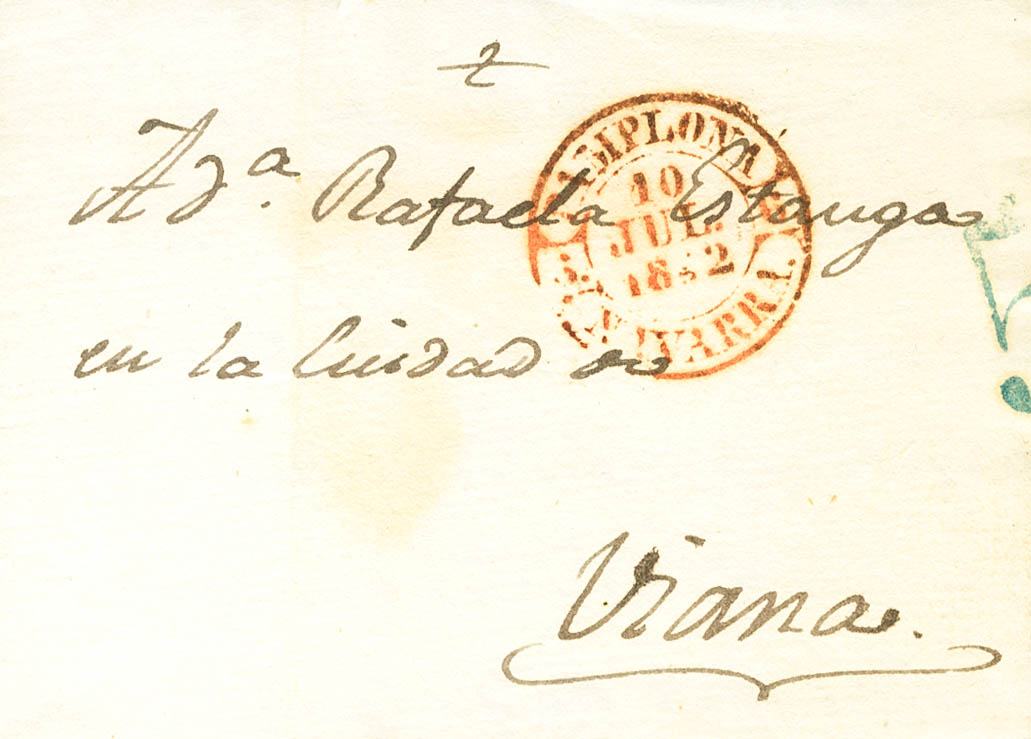 A d.ª Rafaela Estanga
en la Ciudad de
Viana.
PAMPLONA
10
JUL.
1842
NAVARRA.
5